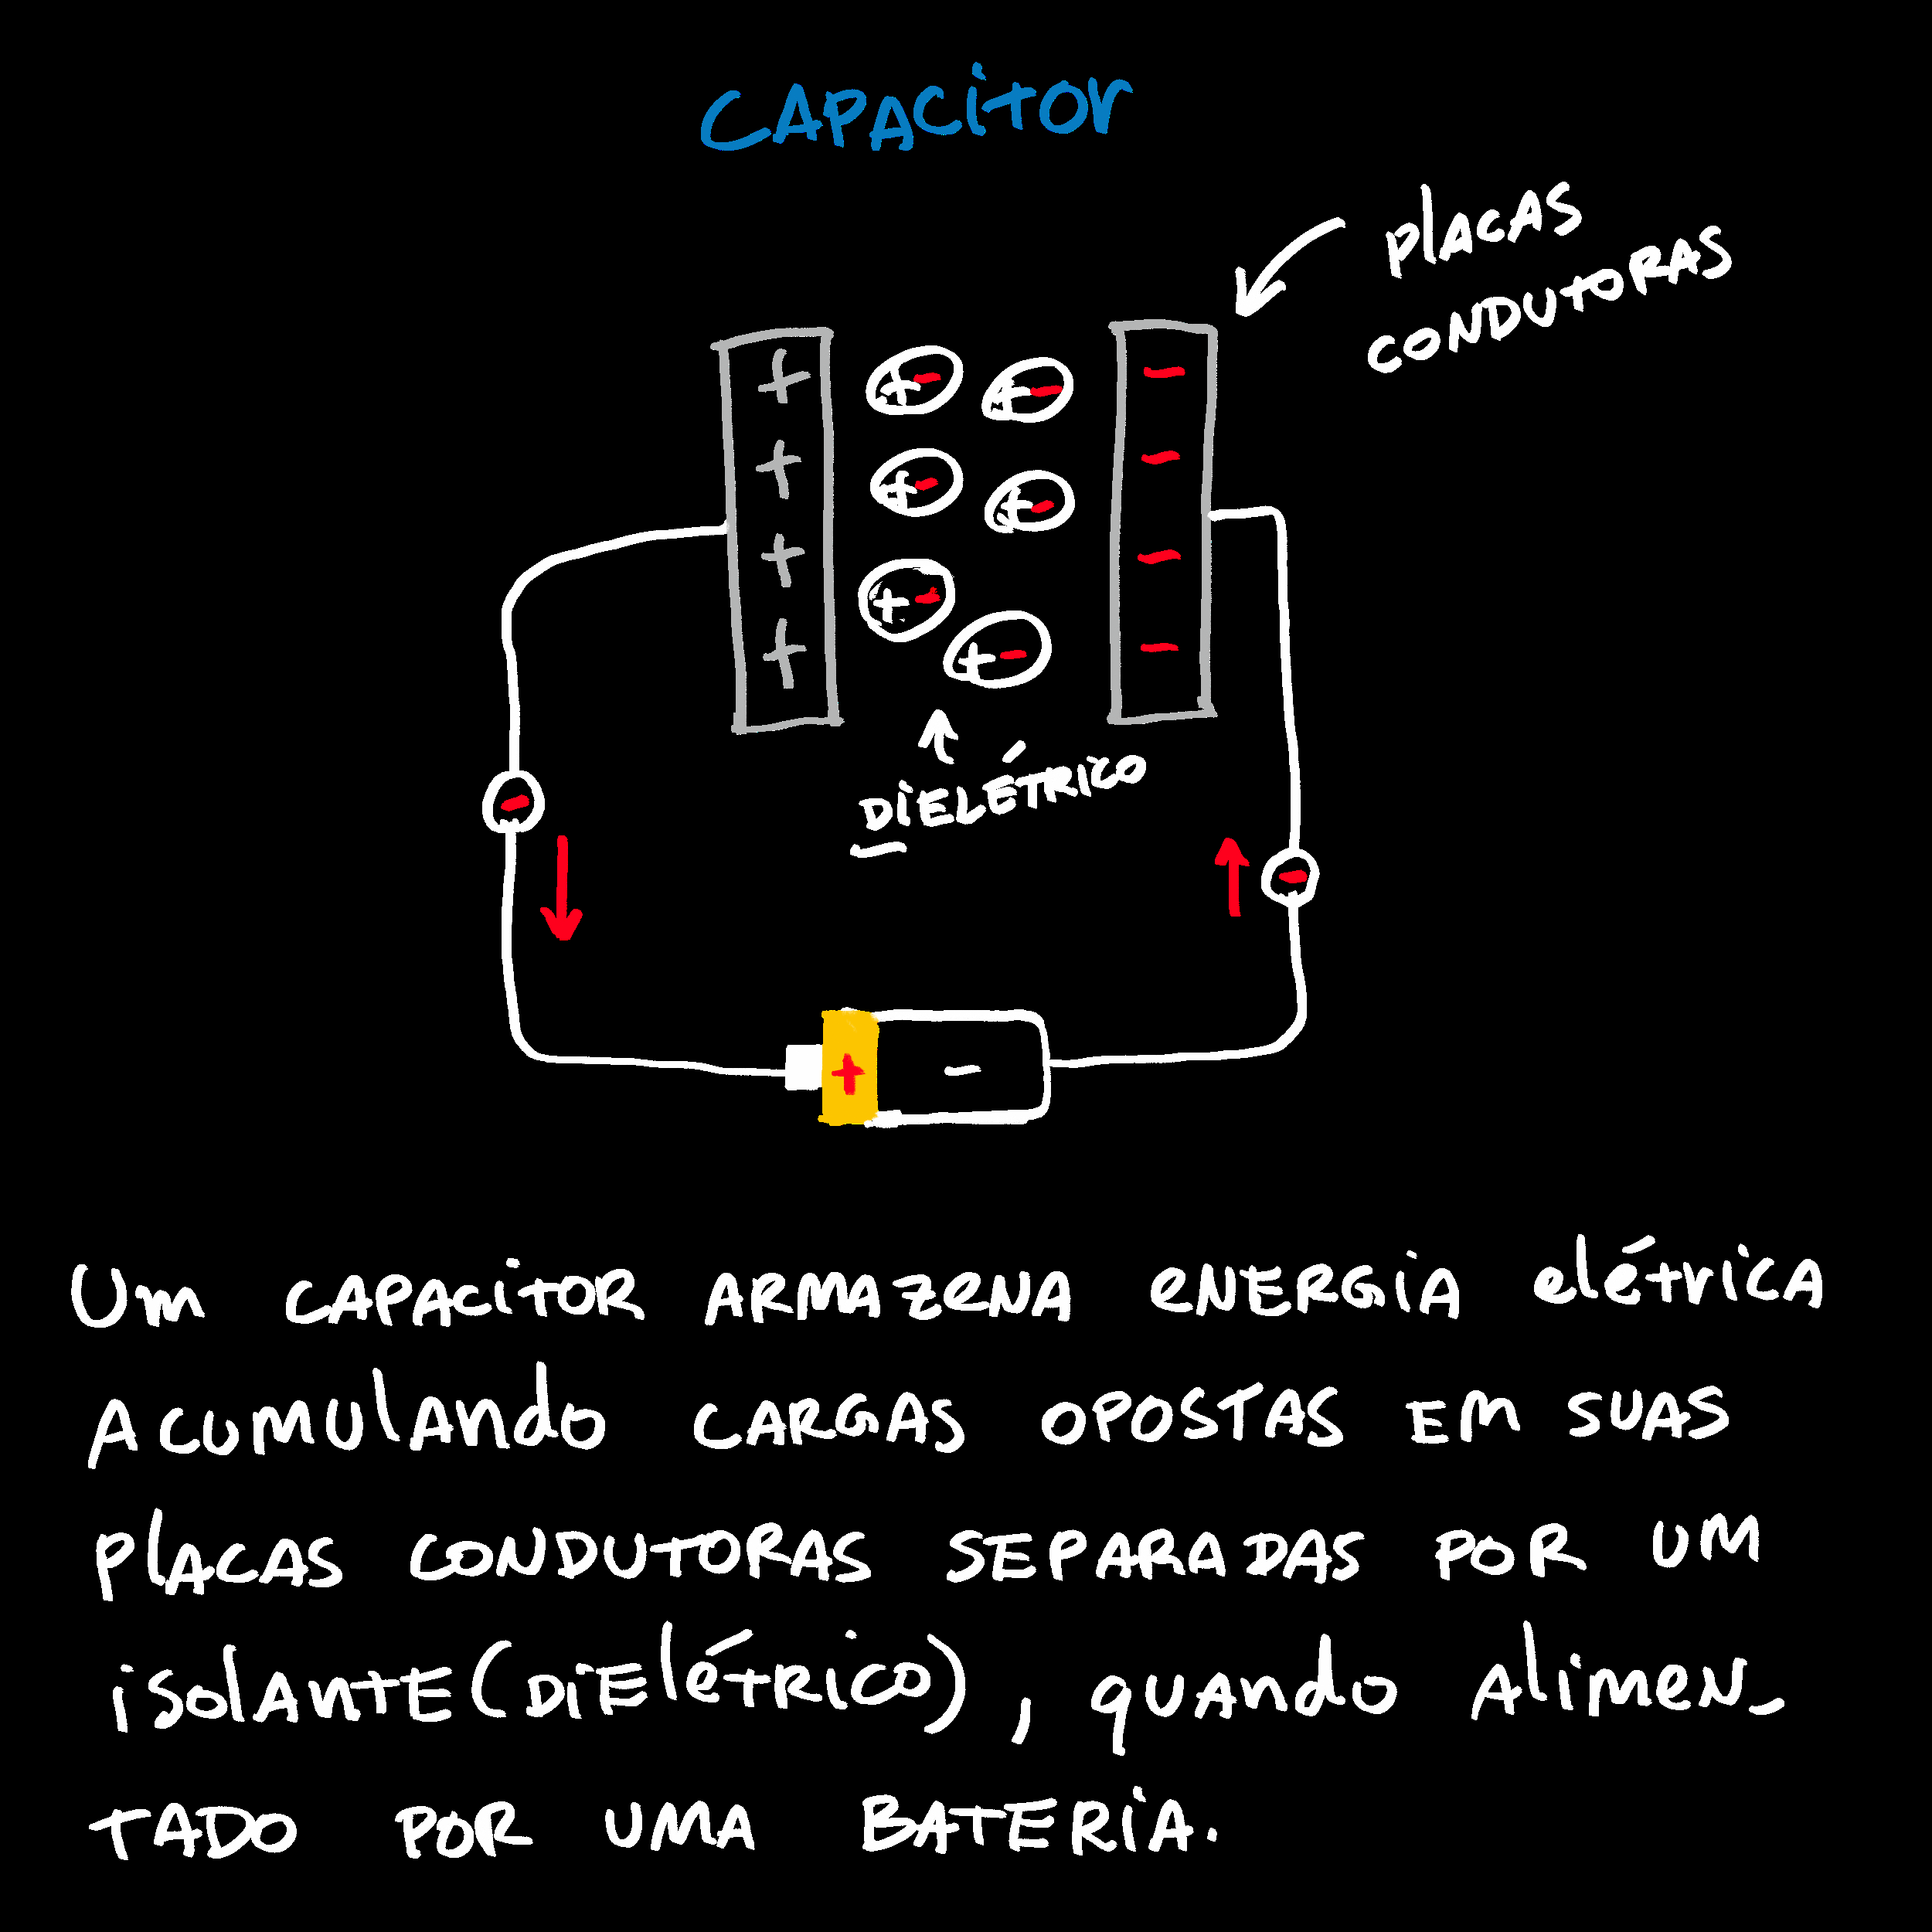 CAPACITOR
PLACAS
CONDUTORAS
+ +- +- -
+ +- +- -
+ +- -
+ +- -
DIELÉTRICO
- -
+ -
UM CAPACITOR ARMAZENA ENERGIA ELÉTRICA
ACUMULANDO CARGAS OPOSTAS EM SUAS
PLACAS CONDUTORAS SEPARADAS POR UM
ISOLANTE(DIELÉTRICO), QUANDO ALIMEN-
TADO POR UMA BATERIA.